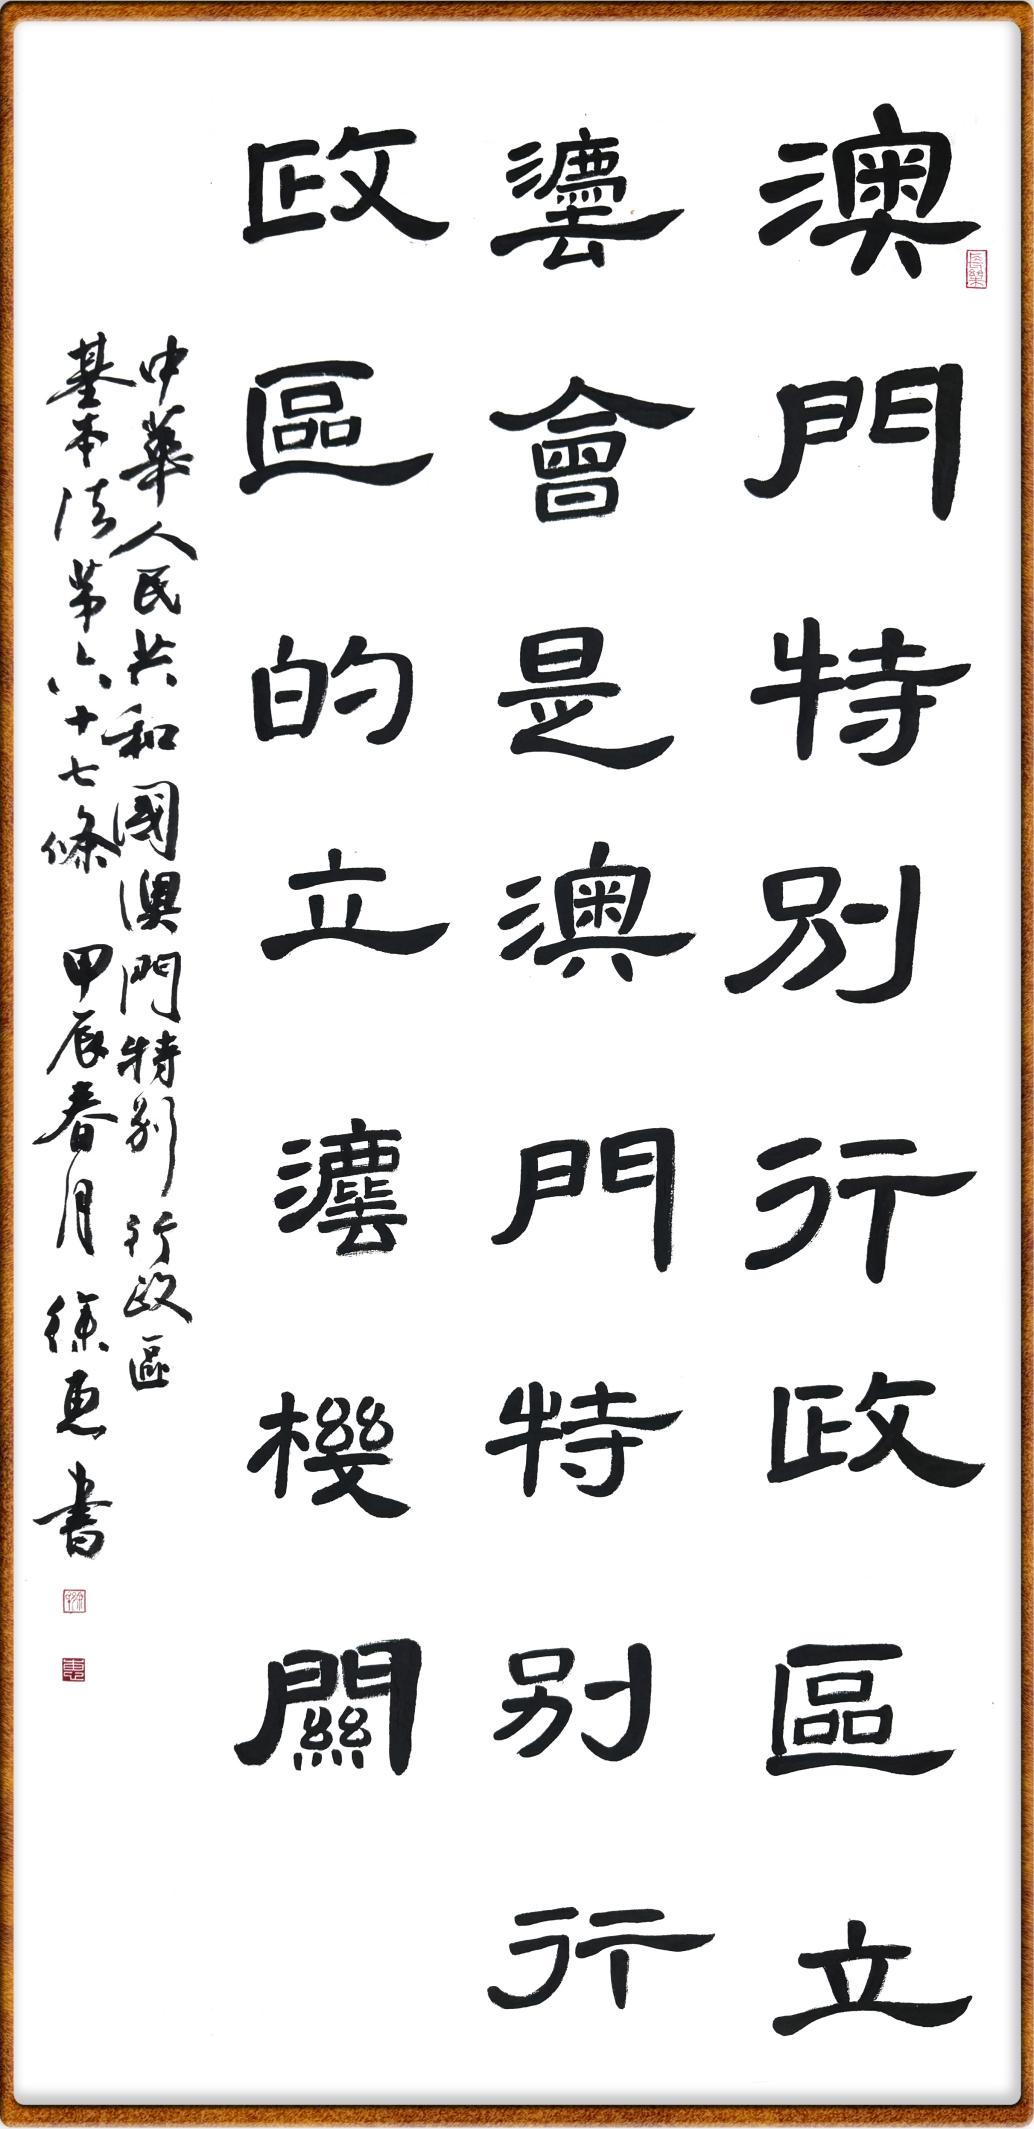 澳門特別行政區立
灋會是澳門特別行
政區的立灋機關
中華人民共和國澳門特別行政區
基本法第六十七條 甲辰春月 徐惠書